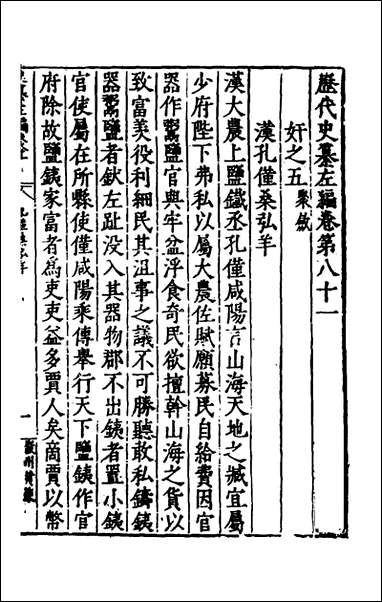 歷代史纂左編卷第八十一
奸之五 聚斂
漢孔僅桑弘羊
漢大農上鹽鐵丞孔僅咸陽言山海天地之臧宜屬
少府陛下弗私以屬大農佐賦願募民自給費因官
器作鬻鹽官與牢盆浮食奇民欲擅斡山海之貨以
致富羨役利細民其沮事之議不可勝聽敢私鑄鐵
器鬻鹽者釱左趾没入其器物郡不出鐵者置小鐵
官使屬在所縣使僅咸陽乘傳舉行天下鹽鐵作官
府除故鹽鐵家富者為吏吏益多賈人矣商賈以幣
一